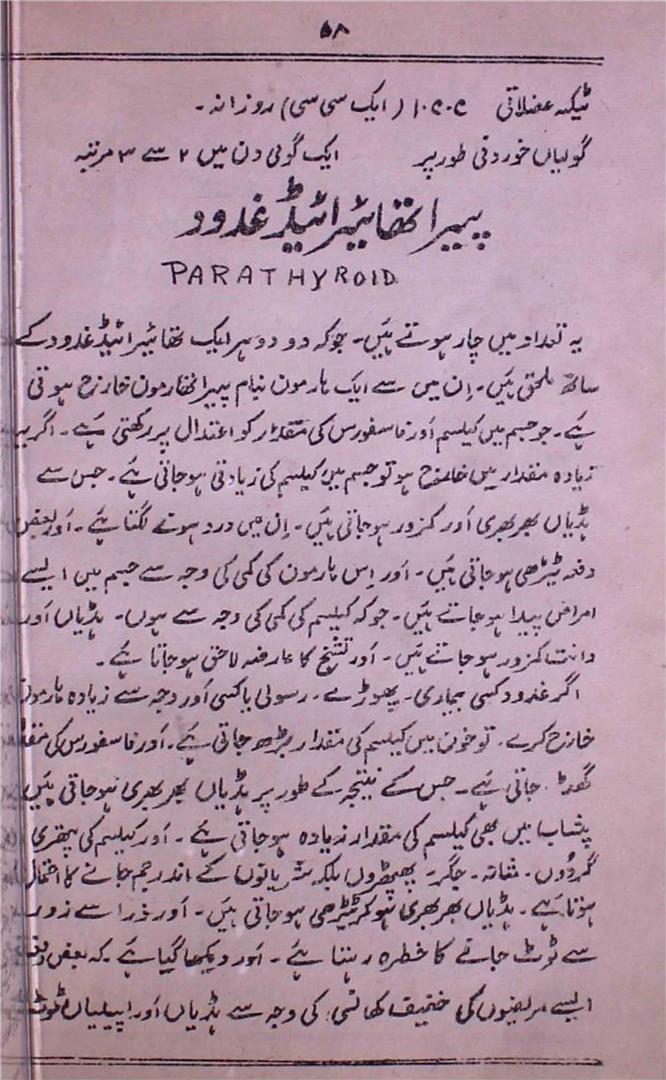 ۵۸
ٹیکہ عضلاتی ۱.c.c (ایک سی سی) روزانہ۔
گولیاں خوردنی طور پر ایک گولی دن میں ۲ سے ۳ مرتبہ
پیراتھائیرائیڈ غدود
PARATHYROID
یہ تعداد میں چار ہوتے ہیں۔ جو کہ دو دو ہر ایک تھائیرائیڈ غدود کے
ساتھ ملحق ہیں۔ اِن میں سے ایک ہارمون بنام پیراتھارمون خارج ہوتی
ہے۔ جو جسم میں کیلسم اَور فاسفورس کی مقدار کو اعتدال پر رکھتی ہے۔ اگر یہ
زیادہ مقدار میں خارج ہو تو جسم میں کیلسم کی زیادتی ہو جاتی ہے۔ جس سے
ہڈیاں بھربھری اَور کمزور ہو جاتی ہیں۔ اِن میں درد ہونے لگتا ہے۔ اَور بعض
دفعہ ٹیڑھی ہو جاتی ہیں۔ اَور اِس ہارمون کی کمی کی وجہ سے جسم میں ایسے
امراض پیدا ہو جاتے ہیں۔ جو کہ کیلسم کی کمی کی وجہ سے ہوں۔ ہڈیاں اَور
دانت کمزور ہو جاتے ہیں۔ اَور تشنج کا عارضہ لاحق ہو جاتا ہے۔
اگر غدود کسی بیماری۔ پھوڑے۔ رسولی یا کسی اَور وجہ سے زیادہ ہارمون
خارج کرے۔ تو خون میں کیلسم کی مقدار بڑھ جاتی ہے۔ اَور فاسفورس کی مقدار
گھٹ جاتی ہے۔ جس کے نتیجہ کے طور پر ہڈیاں بھربھری ہو جاتی ہیں
پشاب میں بھی کیلسم کی مقدار زیادہ ہو جاتی ہے۔ اَور کیلسم کی پتھری
گردوں۔ مثانہ۔ جگر۔ پھیپھڑوں بلکہ شریانوں کے اندر جم جانے کا احتمال
ہوتا ہے۔ ہڈیاں بھربھری ہو کر ٹیڑھی ہو جاتی ہیں۔ اَور ذرا سے زور
سے ٹوٹ جانے کا خطرہ رہتا ہے۔ اَور دیکھا گیا ہے کہ بعض دفعہ
ایسے مریضوں کی خفیف کھانسی کی وجہ سے ہڈیاں اَور پسلیاں ٹوٹ